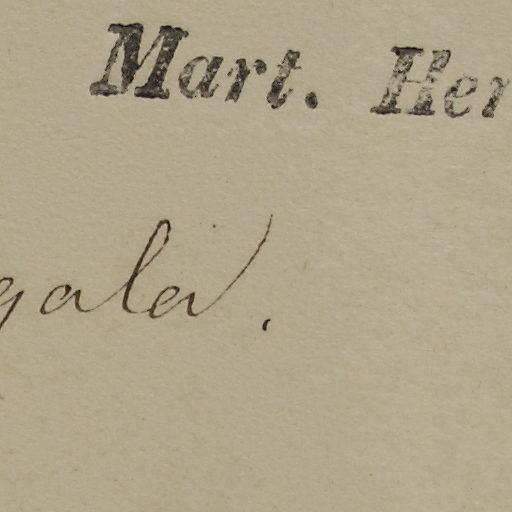 Mart. Her
gala.